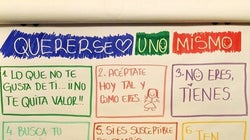 QUERERSE UNO MISMO
1. LO QUE NO TE
GUSTA DE TI...¡¡NO
TE QUITA VALOR!!
2. ACÉPTATE
HOY TAL Y
COMO ERES.
3. NO ERES,
TIENES
4. BUSCA TU
5. SI ES SUSCEPTIBLE
6. TEN